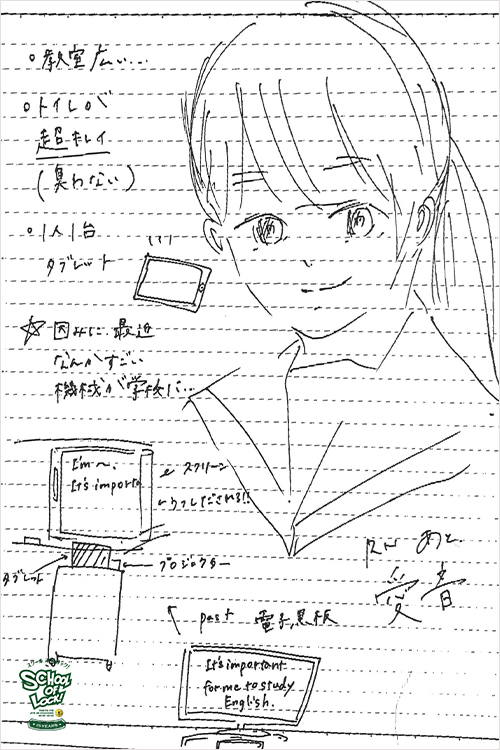 ○教室広い...
○トイレが
超キレイ
(臭わない)
○1人1台
タブレット
☆因みに最近
なんかすごい
機械が学校に...
I'm ~.
It's importa
スクリーン
うつしだされる!!
タブレット
プロジェクター
RN あと
愛音
past 電子黒板
It's important
for me to study
English.
SCHOOL
OF
LOCK!